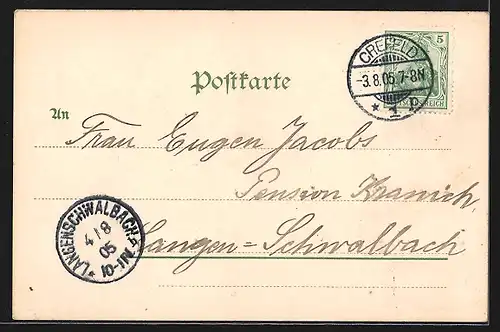 Postkarte
5
CREFELD
-3.8.05.7-8N
* 1 p.
REICH
An
Frau Eugen Jacobs
Pension Kranich,
Langen=Schwalbach
LANGENSCHWALBACH
4/8
05
10-11